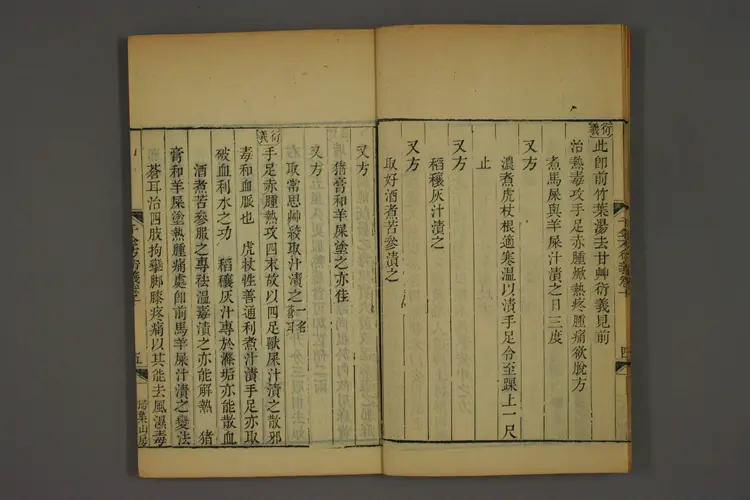 衍義
此卽前竹葉湯去甘艸衍義見前
治熱毒攻手足赤腫焮熱疼腫痛欲脫方
煮馬屎與羊屎汁漬之日三度
又方
濃煮虎杖根適寒溫以漬手足令至踝上一尺
止
又方
稻穰灰汁漬之
又方
取好酒煮苦參漬之
四
又方
猪膏和羊屎塗之亦佳
又方
取常思艸絞取汁漬之一名蒼耳
衍義
手足赤腫熱攻四末故以四足獸屎汁漬之散邪
毒和血脈也 虎杖性善通利煮汁漬手足亦取
破血利水之功 稻穰灰汁專於滌垢亦能散血
酒煮苦參服之專祛溫毒漬之亦能解熱 猪
膏和羊屎塗熱腫痛處卽前馬羊屎汁漬之變法
蒼耳治四肢拘攣脚膝疼痛以其能去風濕毒
五